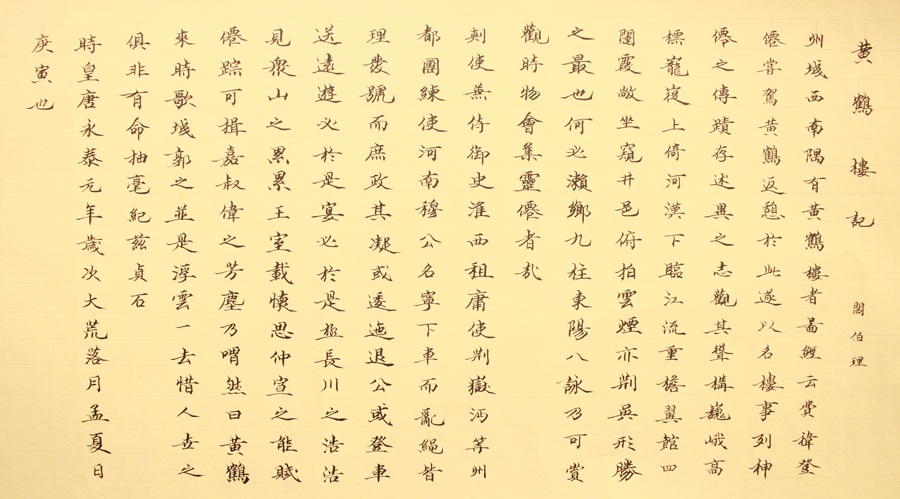 黄鶴樓記
閻伯理
州城西南隅有黄鶴樓者啚經云費禕登
僊嘗駕黄鶴返憩於此遂以名樓事列神
僊之傳蹟存述異之志觀其聳構巍峨高
標巃嵸上倚河漢下臨江流重檐翼館四
闥霞敞坐窺井邑俯拍雲煙亦荆吳形勝
之最也何必瀨鄉九柱東陽八詠乃可賞
觀時物會集靈僊者哉
刺使兼侍御史淮西租庸使荆嶽沔等州
都團練使河南穆公名寧下車而亂繩皆
理發號而庶政其凝或逶迤退公或登車
送遠遊必於是宴必於是極長川之浩浩
見衆山之累累王室載懷思仲宣之能賦
僊踪可揖嘉叔偉之芳塵乃喟然曰黄鶴
來時歌城郭之並是浮雲一去惜人世之
俱非有命抽毫紀兹貞石
時皇唐永泰元年歲次大荒落月孟夏日
庚寅也